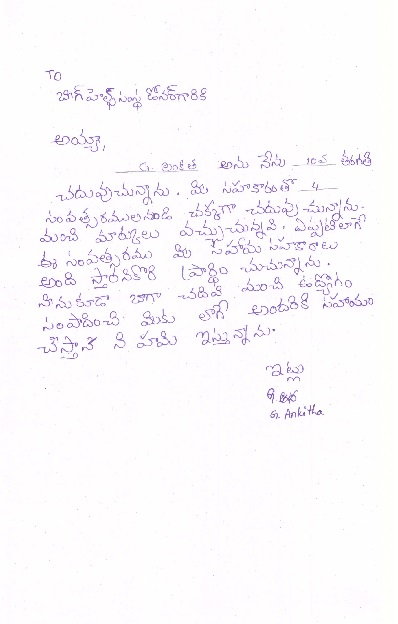 TO
బిగ్ హెల్ప్ సంస్థ ఓనర్‌గారికి
అయ్యా,
G. అంకిత అను నేను 10వ తరగతి
చదువుచున్నాను. మీ సహకారంతో 4
సంవత్సరములనుండి చక్కగా చదువుచున్నాను.
మంచి మార్కులు వచ్చుచున్నవి. ఎప్పటిలాగే
ఈ సంవత్సరము మీ సహాయ సహకారాలు
అంది స్తారనికోరి ప్రార్థిం చుచున్నాను.
నేనుకూడా బాగా చదివి మంచి ఉద్యోగం
సంపాదించి మీకు లాగే అందరికి సహాయం
చేస్తాన ని హామి ఇస్తున్నాను.
ఇట్లు
G. Ankitha